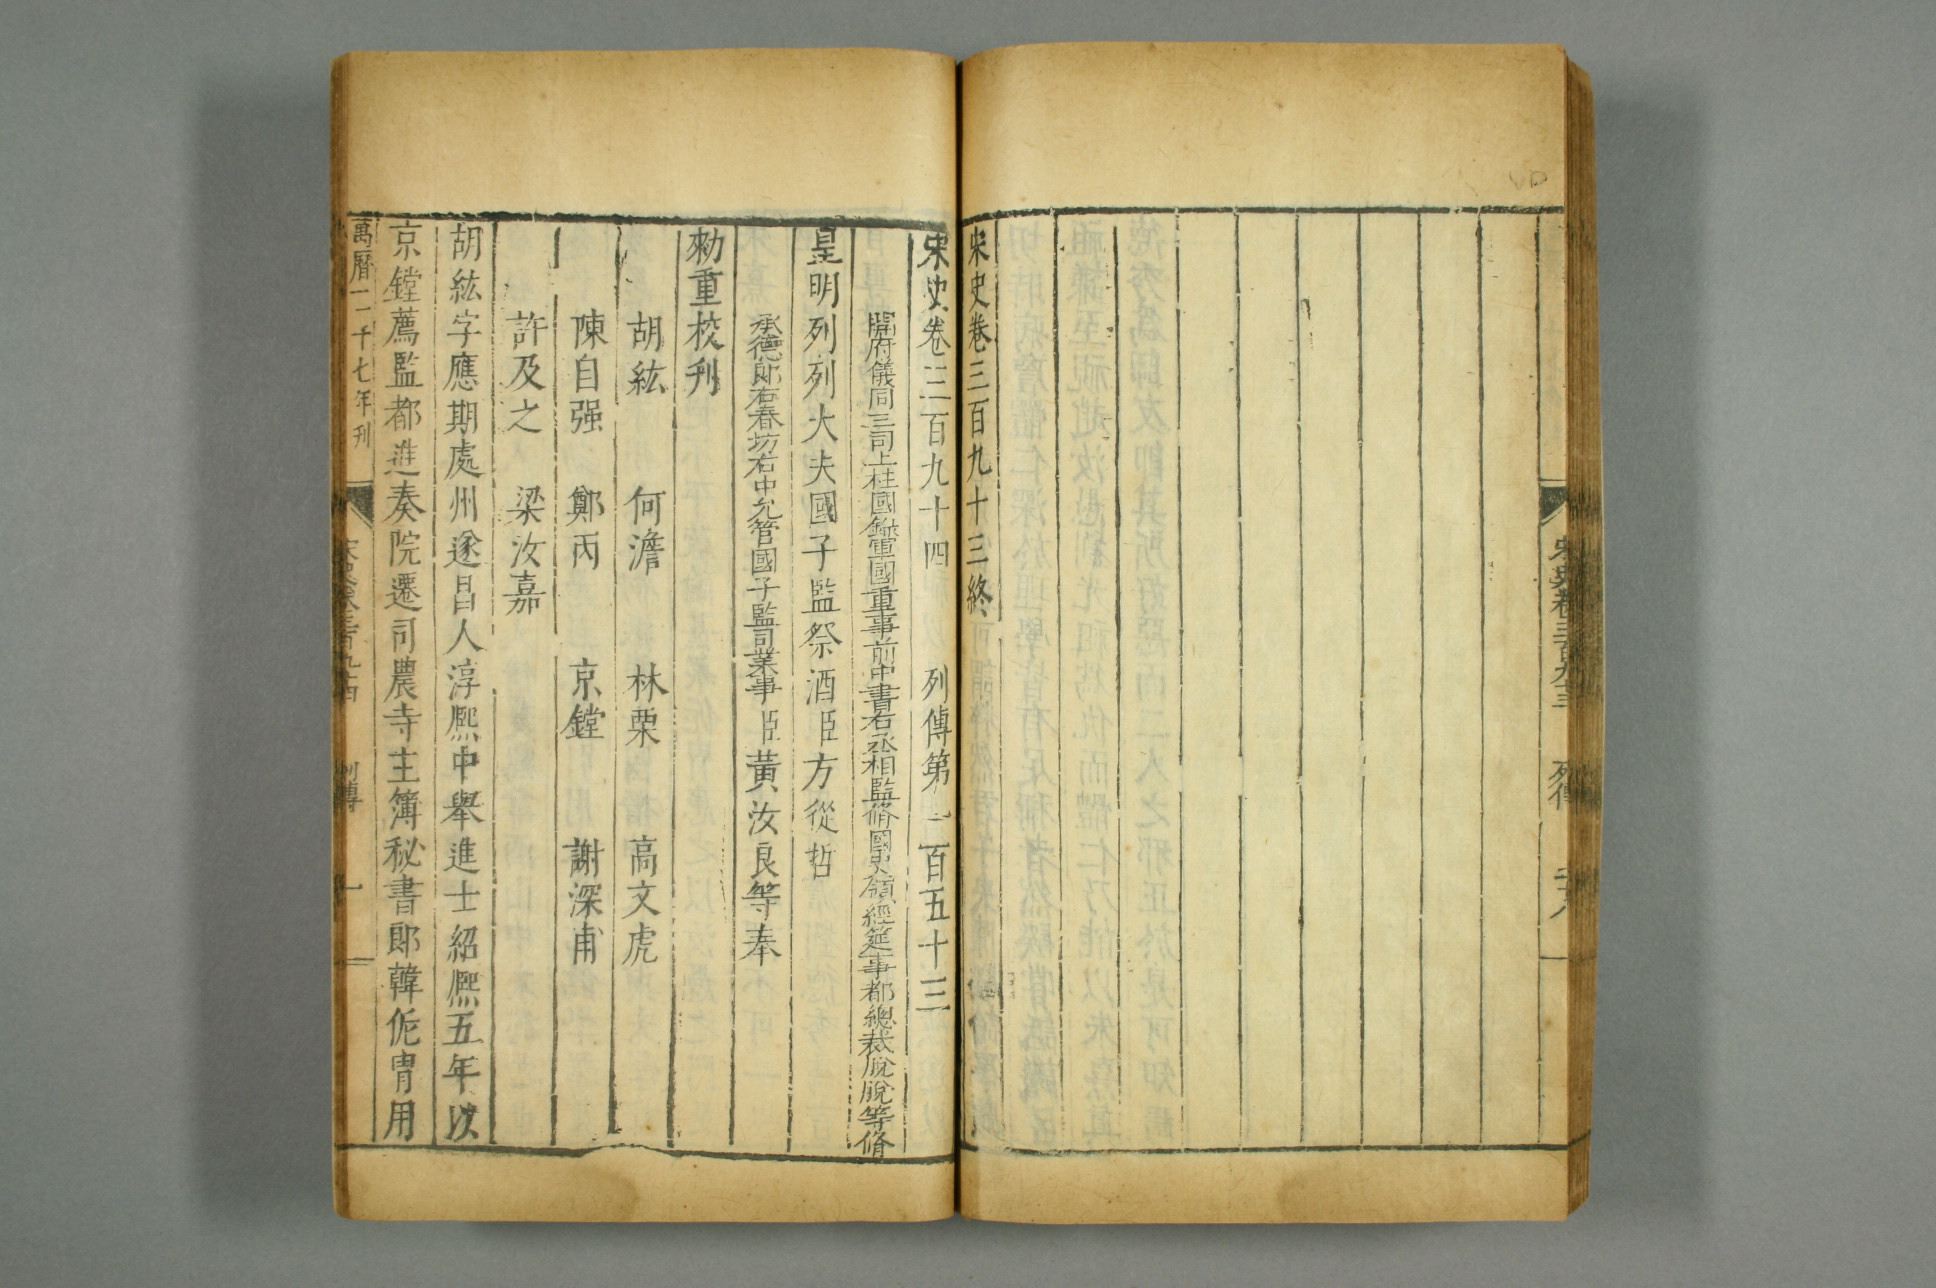 宋史卷三百九十三
列傳
二十八
宋史卷三百九十三終
宋史卷三百九十四　列傳第一百五十三
開府儀同三司上柱國錄軍國重事前中書右丞相監脩國史領經筵事都總裁脫脫等脩
皇明列列大夫國子監祭酒臣方從哲
承德郎右春坊右中允管國子監司業事臣黃汝良等奉
勑重校刋
胡紘　何澹　林栗　高文虎
陳自强　鄭丙　京鏜　謝深甫
許及之　梁汝嘉
胡紘字應期處州遂昌人淳熈中舉進士紹熈五年以
京鏜薦監都進奏院遷司農寺主簿秘書郎韓侂冑用
萬曆二十七年刋
宋史卷三百九十四
列傳
一